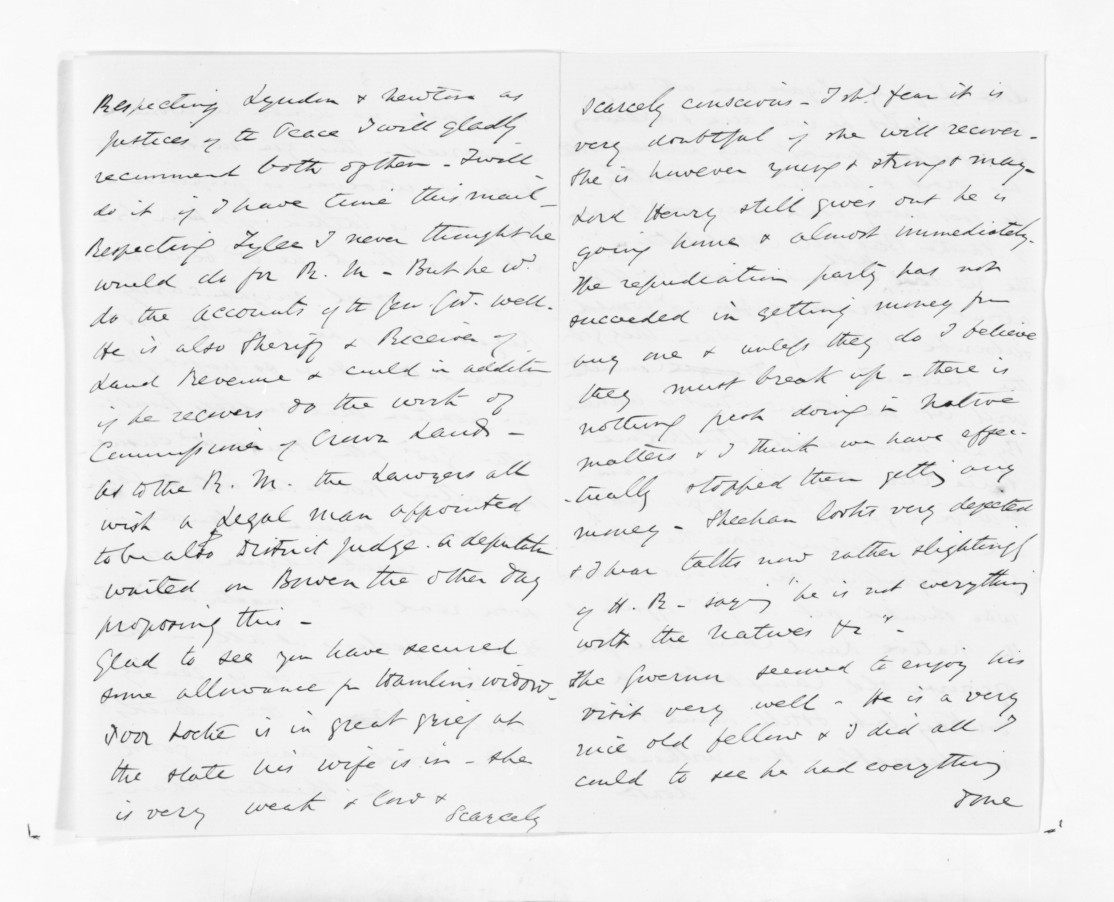 Respecting Lyndon & Newton as
Justices of the Peace I will gladly
recommend both of them - I will
do it if I have time this mail -
Respecting Tylee I never thought he
would do for R. M - But he wd
do the accounts of the Gen. Govt. well.
He is also Sheriff & Receiver of
Land Revenue & could in addition
if he recovers do the work of
Commissioner of Crown Lands -
As to the R. M. the Lawyers all
wish a Legal man appointed
to be also District Judge. a deputation
waited on Bowen the other day
proposing this -
Glad to see you have secured
some allowance for Hamlins widow -
Poor Locke is in great grief at
the state his wife is in - she
is very weak & low &
scarcely
scarcely conscious - I shd fear it is
very doubtful if she will recover -
She is however young & strong & may -
Lord Henry still gives out he is
going home & almost immediately -
The repudiation party has not
succeeded in getting money from
any one & unless they do I believe
they must break up - there is
nothing fresh doing in Native
matters & I think we have effec-
-tually stopped them getting any
money - Sheehan looks very dejected
& I hear talks now rather slightingly
of H. R - saying "he is not everything
with the Natives &c" -
The Governor seemed to enjoy his
visit very well - He is a very
nice old fellow & I did all I
could to see he had everything
done